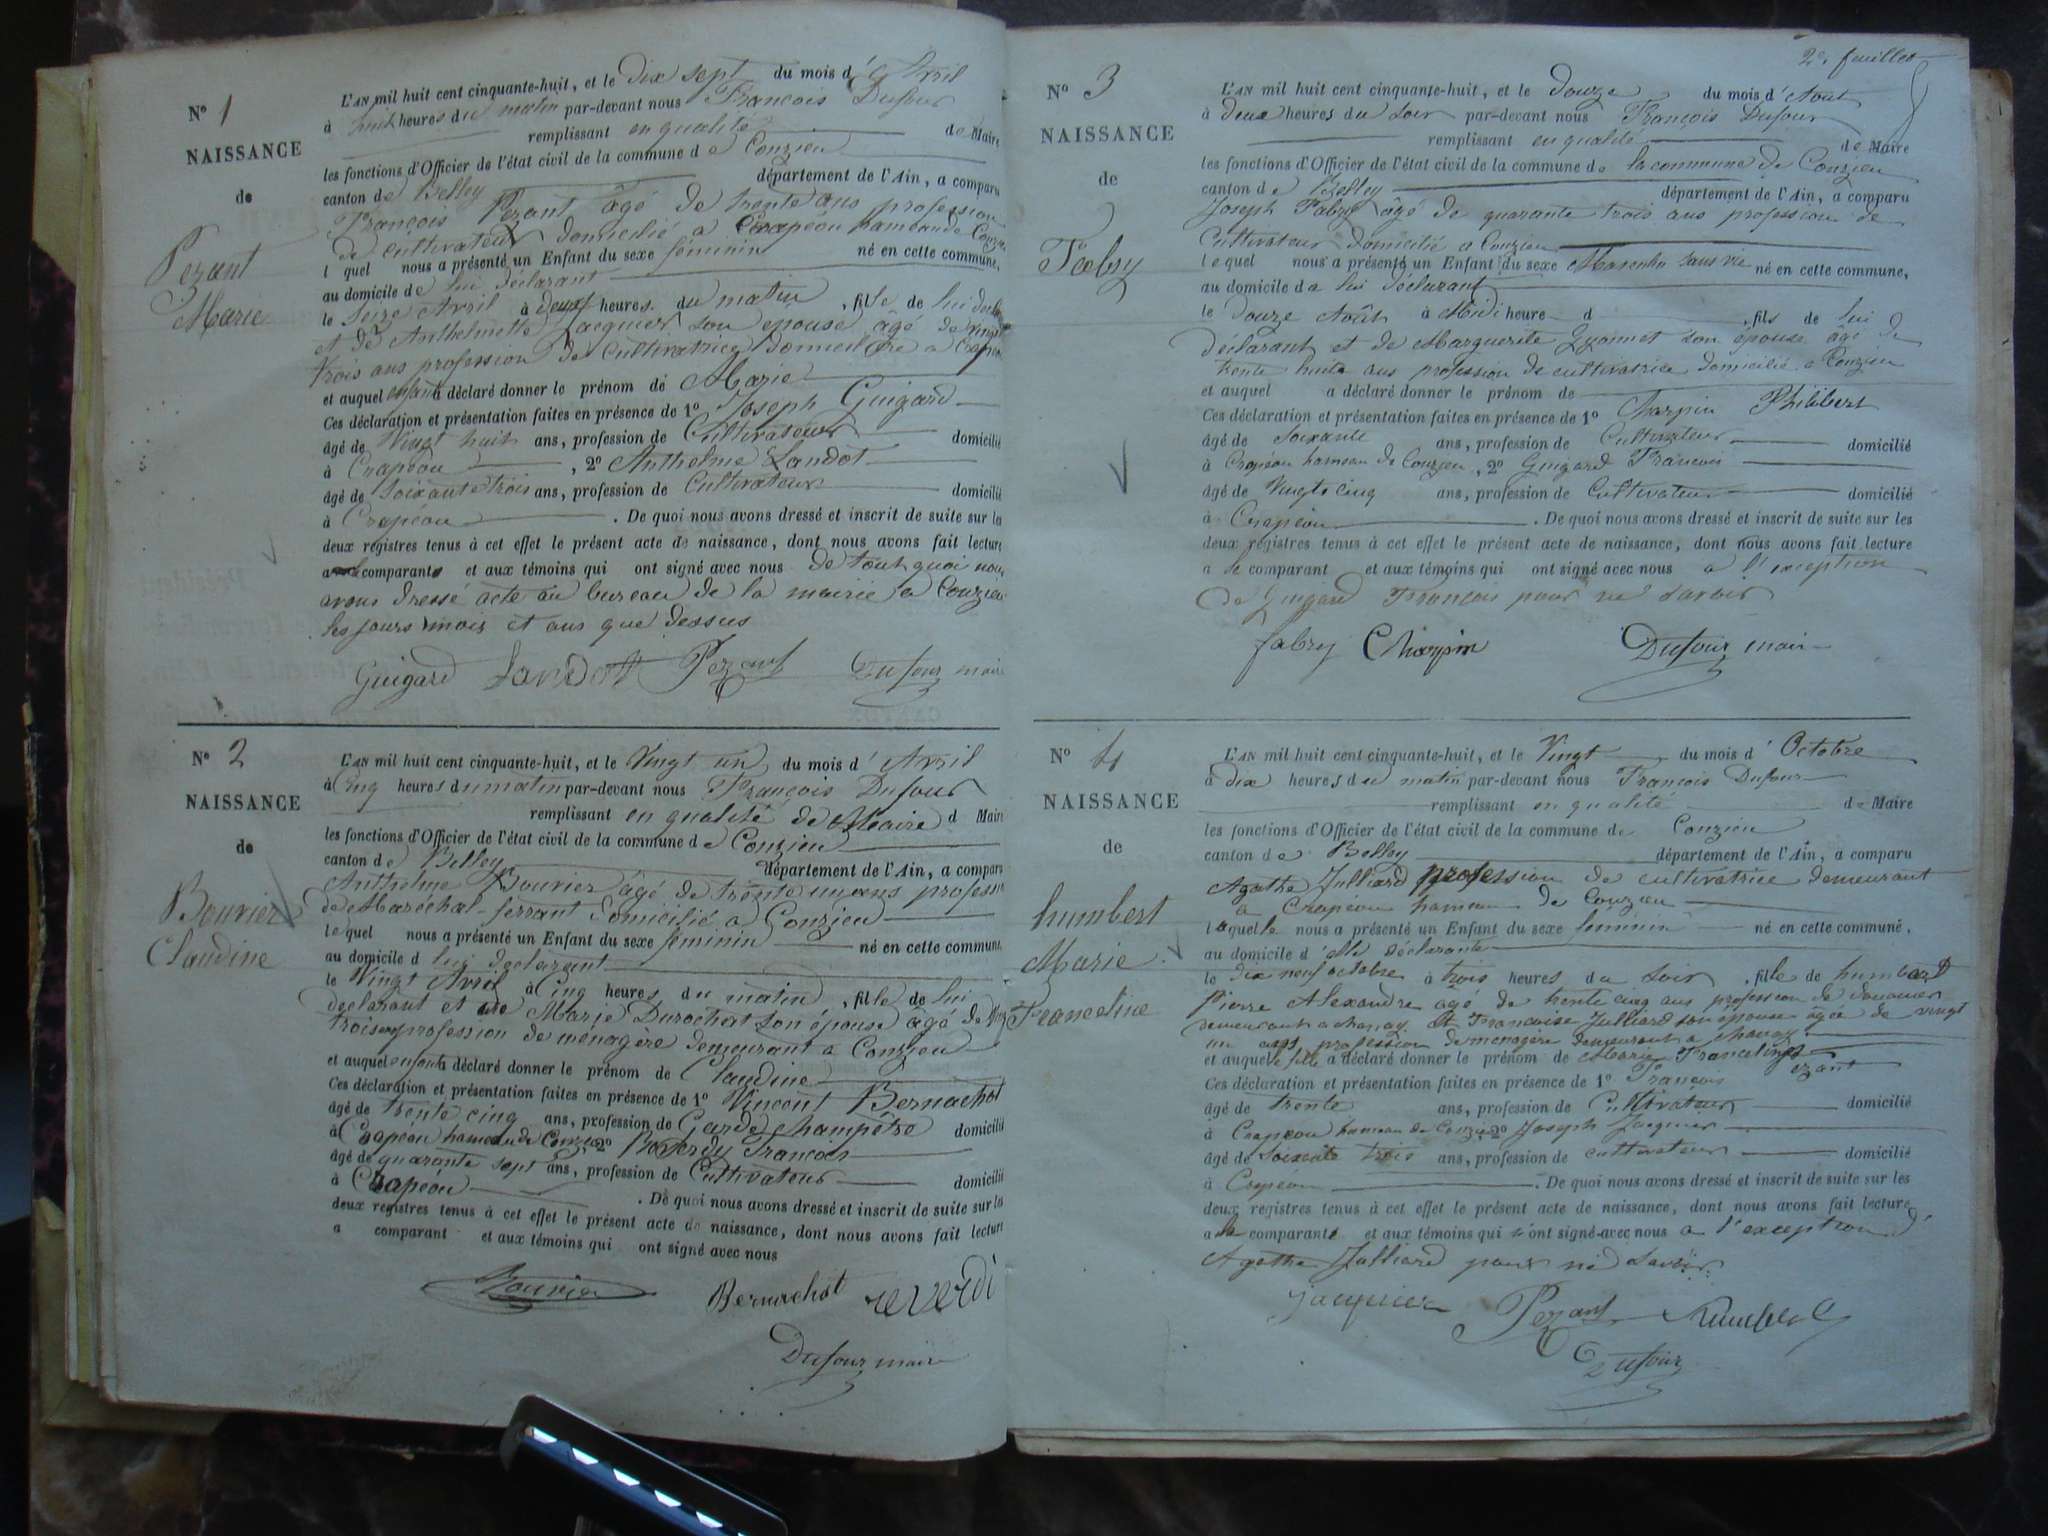 N° 1
NAISSANCE
de
Pezant
Marie
L'AN mil huit cent cinquante-huit, et le dix sept du mois d'Avril
à huit heures du matin par-devant nous François Dufour
remplissant en qualité de Maire
les fonctions d'Officier de l'état civil de la commune de Conzieu
canton de Belley département de l'Ain, a comparu
François Pezant âgé de trente ans profession
de cultivateur domicilié a Crapéou hameau de Conzieu
lequel nous a présenté un Enfant du sexe féminin né en cette commune,
au domicile de lui déclarant
le seize Avril à deux heures du matin, fille de lui
et de Anthelmette Jacquier son epouse âgé de vingt
trois ans profession de cultivatrice domiciliée a
et auquel enfant a déclaré donner le prénom de Marie
Ces déclaration et présentation faites en présence de 1° Joseph Guigard
âgé de vingt huit ans, profession de Cultivateur domicilié
à Crapéou, 2° Anthelme Landot
âgé de soixante trois ans, profession de Cultivateur domicilié
à Crapéou. De quoi nous avons dressé et inscrit de suite sur les
deux registres tenus à cet effet le présent acte de naissance, dont nous avons fait lecture
comparant et aux témoins qui ont signé avec nous de tout quoi nous
avons dressé acte au bureau de la mairie a Conzieu
les jours mois et ans que dessus
Guigard Landot Pezant Dufour maire
N° 2
NAISSANCE
de
Bouvier
Claudine
L'AN mil huit cent cinquante-huit, et le Vingt un du mois d'Avril
à Cinq heures du matin par-devant nous François Dufour
remplissant en qualité de Maire d Maire
les fonctions d'Officier de l'état civil de la commune de Conzieu
canton de Belley département de l'Ain, a comparu
Anthelme Bouvier âgé de trente un ans profession
de Maréchal-ferrant domicilié a Conzieu
lequel nous a présenté un Enfant du sexe féminin né en cette commune,
au domicile d lui déclarant
le Vingt Avril à Cinq heures du matin, fille de lui
déclarant et de Marie Durochat son épouse âgé de
trois profession de ménagère demeurant a Conzieu
et auquel enfant a déclaré donner le prénom de Claudine
Ces déclaration et présentation faites en présence de 1° Vincent Bernachot
âgé de trente cinq ans, profession de Garde champêtre domicilié
à Crapéou hameau de Conzieu 2° Reverdy François
âgé de quarante sept ans, profession de Cultivateur domicilié
à Crapéou. De quoi nous avons dressé et inscrit de suite sur les
deux registres tenus à cet effet le présent acte de naissance, dont nous avons fait lecture
a comparant et aux témoins qui ont signé avec nous
Bouvier Bernachot reverdi
Dufour maire
2e feuillet
N° 3
NAISSANCE
de
Fabry
L'AN mil huit cent cinquante-huit, et le douze du mois d'Août
à deux heures du soir par-devant nous François Dufour
remplissant en qualité de Maire
les fonctions d'Officier de l'état civil de la commune de la commune de Conzieu
canton de Belley département de l'Ain, a comparu
Joseph Fabry âgé de quarante trois ans profession de
Cultivateur domicilié a Conzieu
lequel nous a présenté un Enfant du sexe Masculin sans vie né en cette commune,
au domicile de lui déclarant
le douze Août à Midi heure d, fils de lui
déclarant et de Marguerite Lyonnet son épouse âgé de
trente huit ans profession de cultivatrice domicilié a Conzieu
et auquel a déclaré donner le prénom de
Ces déclaration et présentation faites en présence de 1° Charpin Philibert
âgé de soixante ans, profession de Cultivateur domicilié
à Crapéou hameau de Conzieu, 2° Guigard François
âgé de Vingt cinq ans, profession de Cultivateur domicilié
à Crapéou. De quoi nous avons dressé et inscrit de suite sur les
deux registres tenus à cet effet le présent acte de naissance, dont nous avons fait lecture
a le comparant et aux témoins qui ont signé avec nous a l'exception
de Guigard François pour ne savoir
fabry Charpin Dufour maire
N° 4
NAISSANCE
de
humbert
Marie
Franceline
L'AN mil huit cent cinquante-huit, et le Vingt du mois d'Octobre
à dix heures du matin par-devant nous François Dufour
remplissant en qualité de Maire
les fonctions d'Officier de l'état civil de la commune de Conzieu
canton de Belley département de l'Ain, a comparu
Agathe Julliard profession de cultivatrice demeurant
a Crapéou hameau de Conzieu
laquelle nous a présenté un Enfant du sexe féminin né en cette commune,
au domicile d'elle déclarante
le dix neuf octobre à trois heures du soir, fille de humbert
Pierre Alexandre agé de trente cinq ans profession de douanier
demeurant a chanay et Francoise Julliard son épouse âgée de vingt
un ans profession de menagere demeurant a chanay
et auquel fille a déclaré donner le prénom de Marie Franceline
Ces déclaration et présentation faites en présence de 1° François Pezant
âgé de trente ans, profession de Cultivateur domicilié
à Crapéou hameau de Conzieu 2° Joseph Jacquier
âgé de soixante trois ans, profession de cultivateur domicilié
à Crapéou. De quoi nous avons dressé et inscrit de suite sur les
deux registres tenus à cet effet le présent acte de naissance, dont nous avons fait lecture
a la comparante et aux témoins qui ont signé avec nous a l'exception d'
Agathe Julliard pour ne savoir
Jacquier Pezant humbert
Dufour